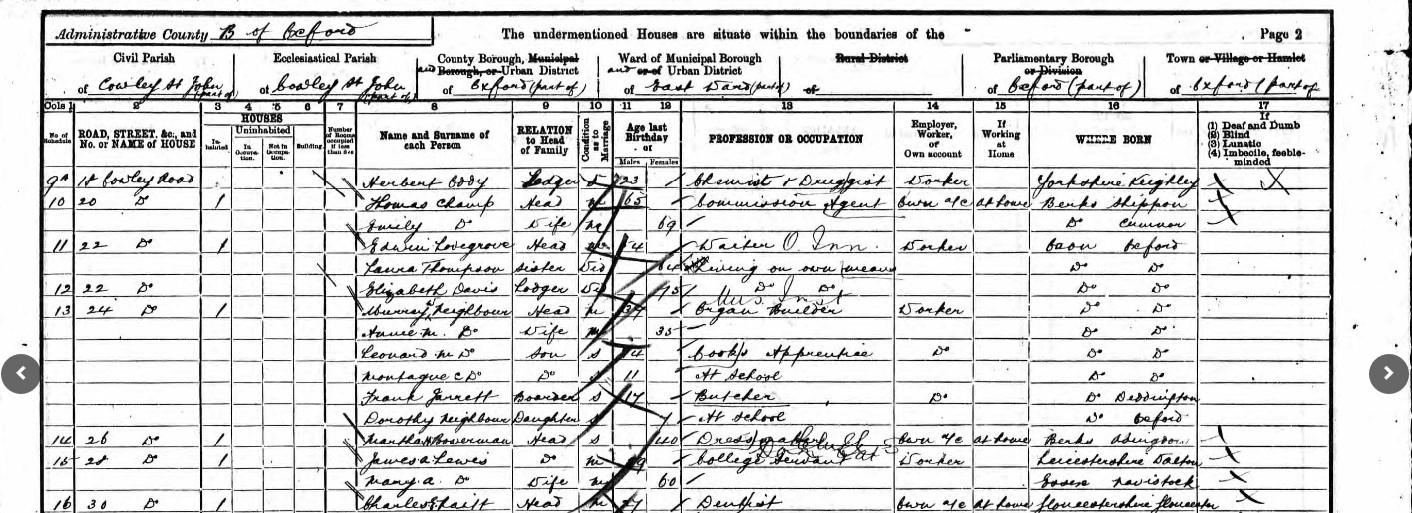 Administrative County B of Oxford
The undermentioned Houses are situate within the boundaries of the
Page 2
Civil Parish
of Cowley St John (part of)
Ecclesiastical Parish
of Cowley St John (part of)
County Borough, Municipal
and Borough, or Urban District
of Oxford (part of)
Ward of Municipal Borough
and or of Urban District
of East Ward (part of)
Rural District
of
Parliamentary Borough
or Division
of Oxford (part of)
Town or Village or Hamlet
of Oxford (part of
Cols 1 2 3 4 5 6 7 8 9 10 11 12 13 14 15 16 17
No. of Schedule
ROAD, STREET, &c., and No. or NAME of HOUSE
HOUSES
Inhabited
Uninhabited
In Occupation.
Not in Occupation.
Building.
Number of Rooms occupied if less than five
Name and Surname of each Person
RELATION to Head of Family
Condition as to Marriage
Age last Birthday of
Males Females
PROFESSION OR OCCUPATION
Employer, Worker, or Own account
If Working at Home
WHERE BORN
If
(1) Deaf and Dumb
(2) Blind
(3) Lunatic
(4) Imbecile, feeble-minded
9A 18 Cowley Road Herbert Cody Lodger S 23 Chemist & Druggist Worker Yorkshire Keighley
10 20 Do 1 Thomas Champ Head M 65 Commission Agent Own a/c At home Berks Shippon
Emily Do Wife M 69 Do Cumnor
11 22 Do 1 Edwin Lovegrove Head 54 Waiter O. Inn. Worker Oxon Oxford
Laura Thompson Sister Wid 64 Living on own means Do Do
12 22 Do Elizabeth Davis Lodger Wid 75 Do Do Do Do
Mus. Inst
13 24 Do 1 Murray Neighbour Head M 37 Organ Builder Worker Do Do
Annie M. Do Wife M 35 Do Do
Leonard M Do Son S 14 Cook's Apprentice Do Do Do
Montague C Do Do S 11 At School Do Do
Frank Jarrett Boarder S 17 Butcher Do Do Deddington
Dorothy Neighbour Daughter S 7 At School Do Oxford
14 26 Do 1 Martha Boverman Head S 40 Dressmaker Own a/c At home Berks Abingdon
15 28 Do 1 James A Lewis Do M 59 College Servant Worker Leicestershire
Mary A. Do Wife M 60 Essex Navistock
16 30 Do 1 Charles Head M Dentist Own a/c At home Gloucestershire Gloucester